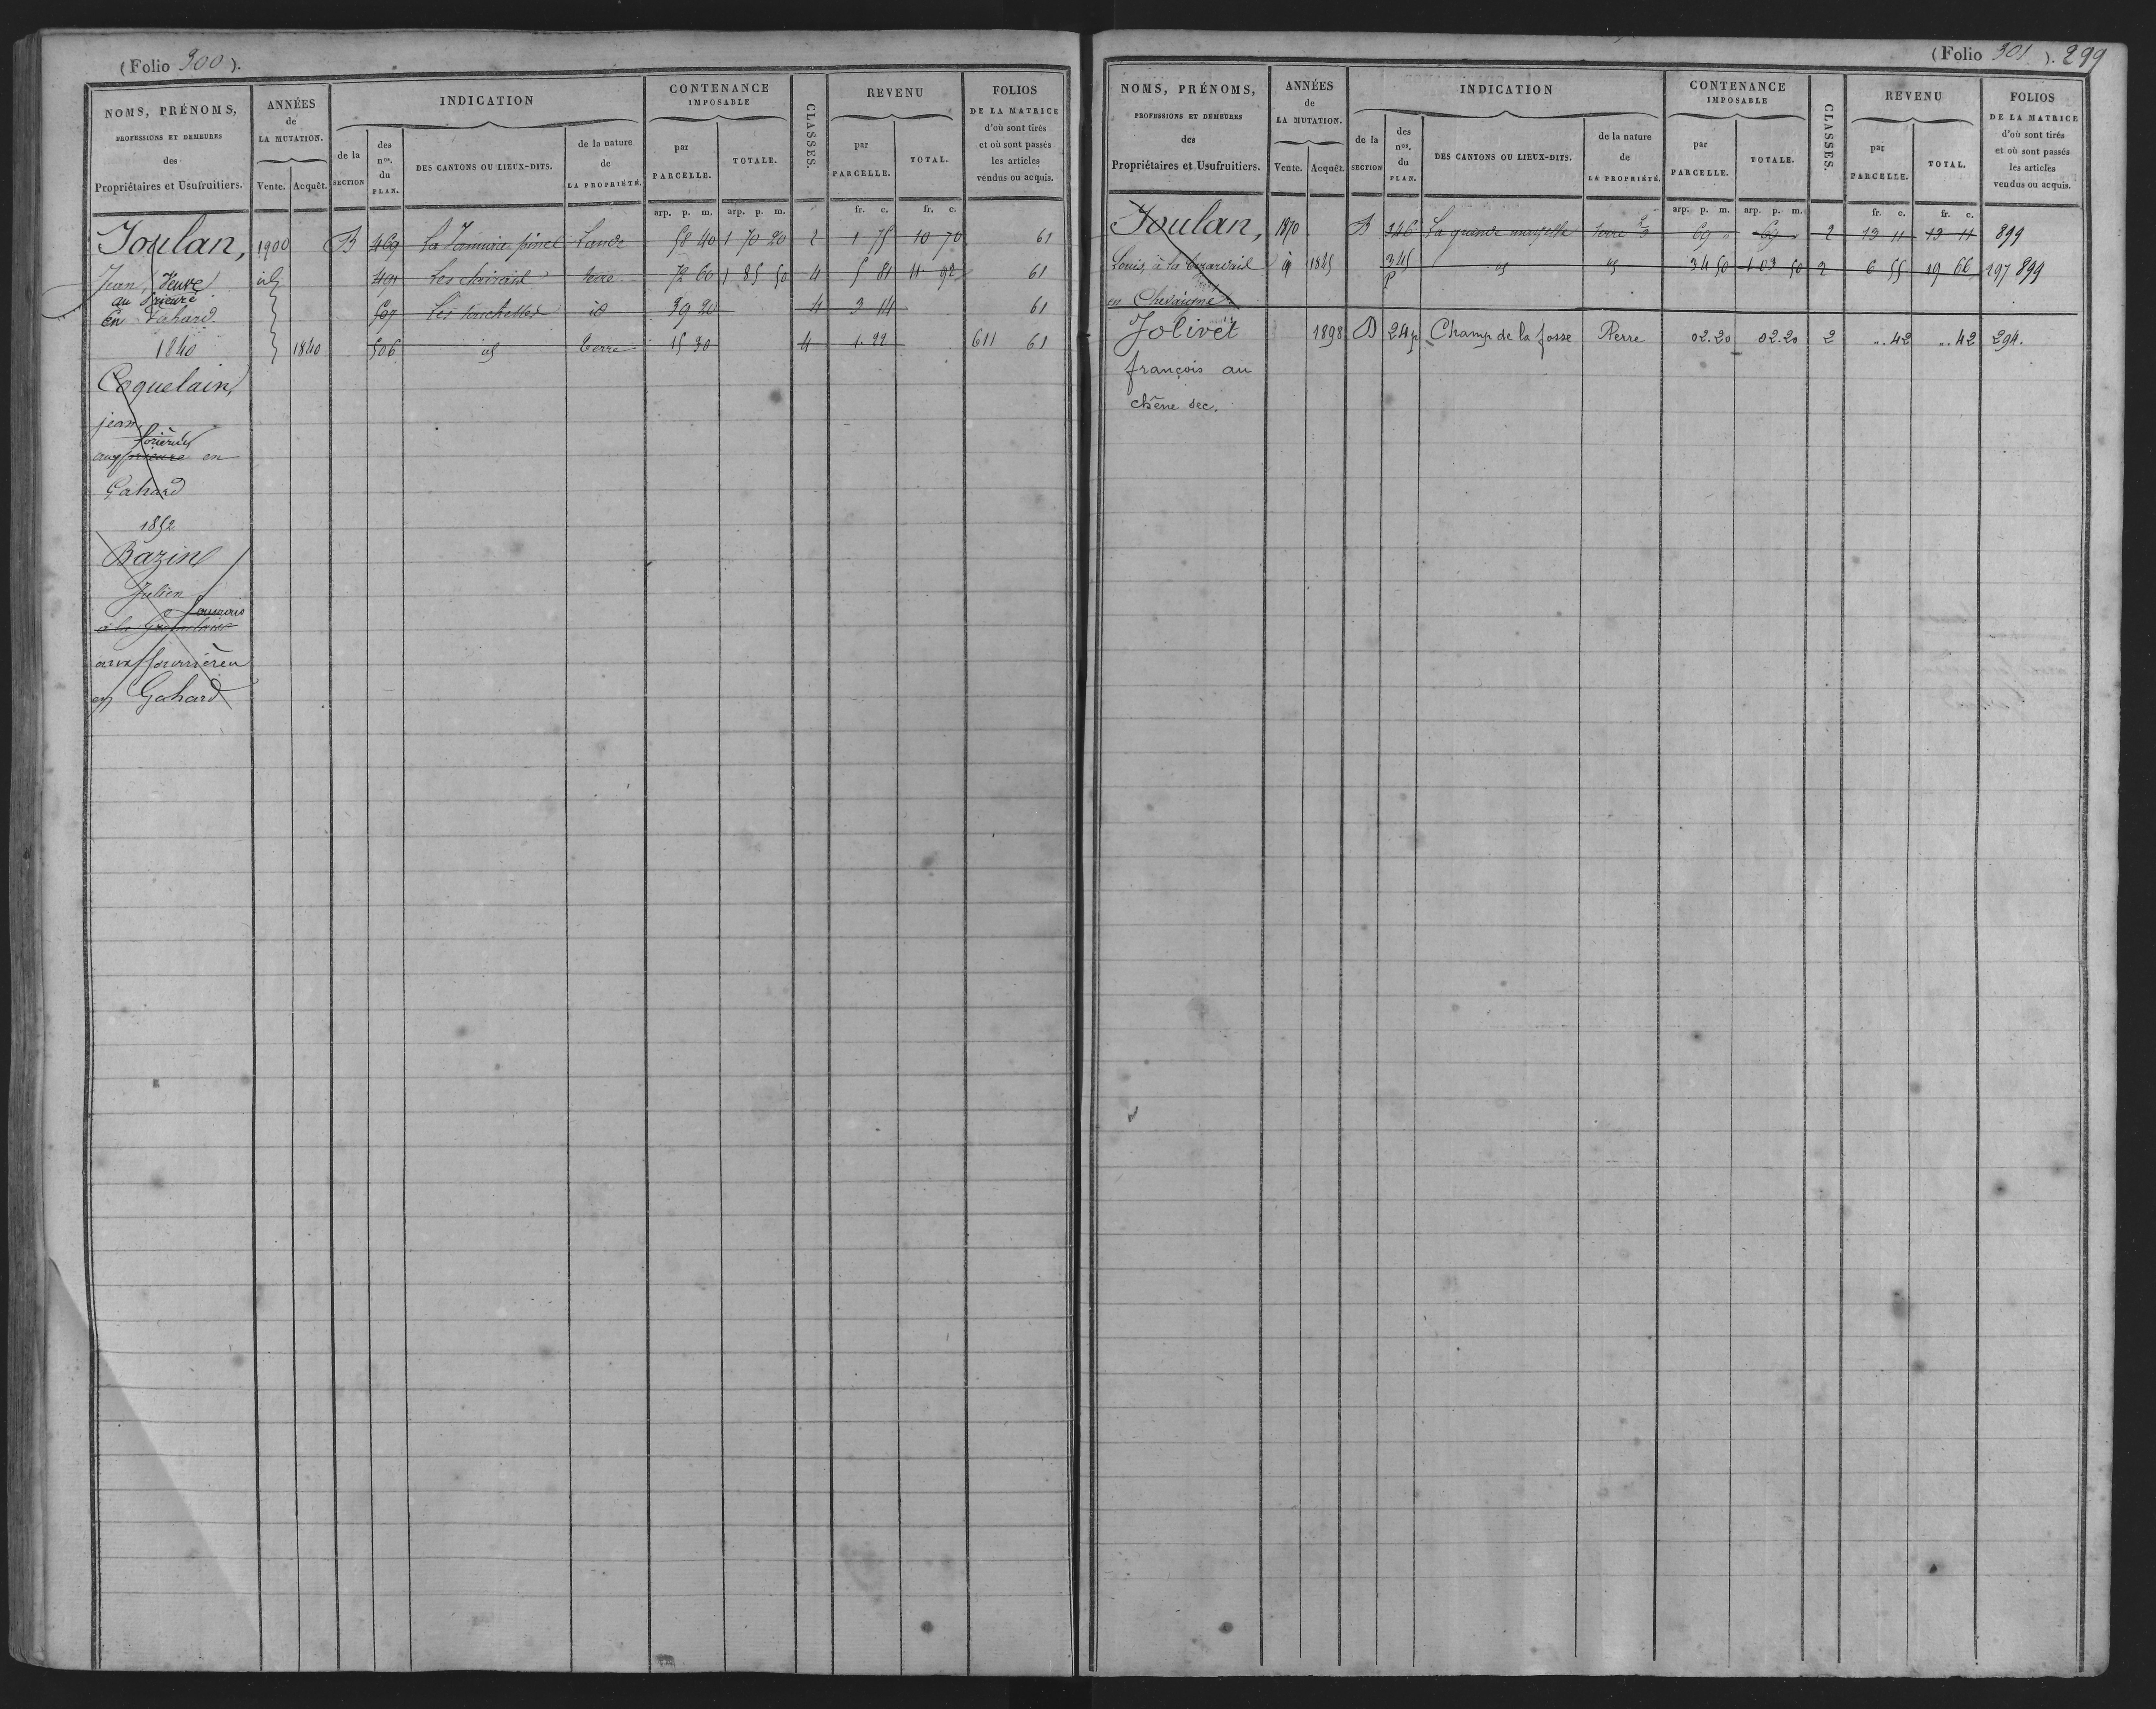 (Folio 300).
NOMS, PRÉNOMS,
PROFESSIONS ET DEMEURES
des
Propriétaires et Usufruitiers.
ANNÉES
de
LA MUTATION.
Vente. Acquêt.
INDICATION
de la
SECTION
des
nos.
du
PLAN.
DES CANTONS OU LIEUX-DITS.
de la nature
de
LA PROPRIÉTÉ.
CONTENANCE
IMPOSABLE
par
PARCELLE.
TOTALE.
CLASSES.
REVENU
par
PARCELLE.
TOTAL.
FOLIOS
DE LA MATRICE
d'où sont tirés
et où sont passés
les articles
vendus ou acquis.
arp. p. m. arp. p. m. fr. c. fr. c.
Joulan, 1900 B 469 La Lande 58 40 1 70 20 2 1 75 10 70 61
Jean, Veuve 491 Les terre 72 60 1 85 50 4 5 81 11 92 61
au Prieuré
en Gahard 507 Les touchettes id 39 20 4 3 14 61
1840 1840 506 id terre 15 30 4 1 22 611 61
Coquelain,
jean,
prieuré en
Gahard
1852
Bazin
Julien
à la
aux
en Gahard
(Folio 301). 299
NOMS, PRÉNOMS,
PROFESSIONS ET DEMEURES
des
Propriétaires et Usufruitiers.
ANNÉES
de
LA MUTATION.
Vente. Acquêt.
INDICATION
de la
SECTION
des
nos.
du
PLAN.
DES CANTONS OU LIEUX-DITS.
de la nature
de
LA PROPRIÉTÉ.
CONTENANCE
IMPOSABLE
par
PARCELLE.
TOTALE.
CLASSES.
REVENU
par
PARCELLE.
TOTAL.
FOLIOS
DE LA MATRICE
d'où sont tirés
et où sont passés
les articles
vendus ou acquis.
arp. p. m. arp. p. m. fr. c. fr. c.
Joulan, 1870 B 346 La grande terre 2/3 69 " 69 " 2 13 11 13 11 899
Louis, à la id 1845 345 p id id 34 50 1 03 50 2 6 55 19 66 197 899
en Chevaigné
Jolivet 1898 D 24p Champ de la fosse Terre 02.20 02.20 2 ".42 ".42 294.
françois au
chêne sec.